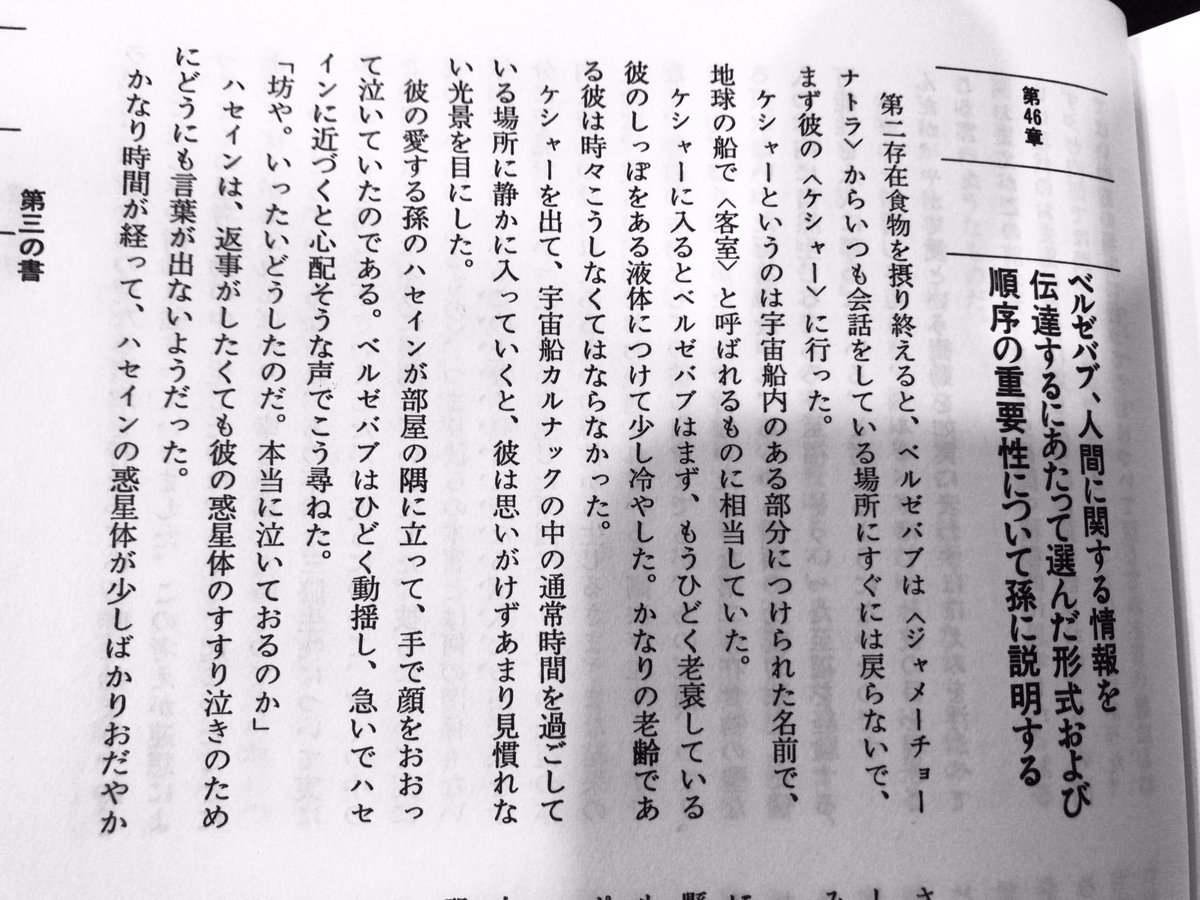 第46章
ベルゼバブ、人間に関する情報を
伝達するにあたって選んだ形式および
順序の重要性について孫に説明する
第二存在食物を摂り終えると、ベルゼバブは〈ジャメーチョー
ナトラ〉からいつも会話をしている場所にすぐには戻らないで、
まず彼の〈ケシャー〉に行った。
ケシャーというのは宇宙船内のある部分につけられた名前で、
地球の船で〈客室〉と呼ばれるものに相当していた。
ケシャーに入るとベルゼバブはまず、もうひどく老衰している
彼のしっぽをある液体につけて少し冷やした。かなりの老齢であ
る彼は時々こうしなくてはならなかった。
ケシャーを出て、宇宙船カルナックの中の通常時間を過ごして
いる場所に静かに入っていくと、彼は思いがけずあまり見慣れな
い光景を目にした。
彼の愛する孫のハセインが部屋の隅に立って、手で顔をおおっ
て泣いていたのである。ベルゼバブはひどく動揺し、急いでハセ
インに近づくと心配そうな声でこう尋ねた。
「坊や。いったいどうしたのだ。本当に泣いておるのか」
ハセインは、返事がしたくても彼の惑星体のすすり泣きのため
にどうにも言葉が出ないようだった。
かなり時間が経って、ハセインの惑星体が少しばかりおだやか
第三の書